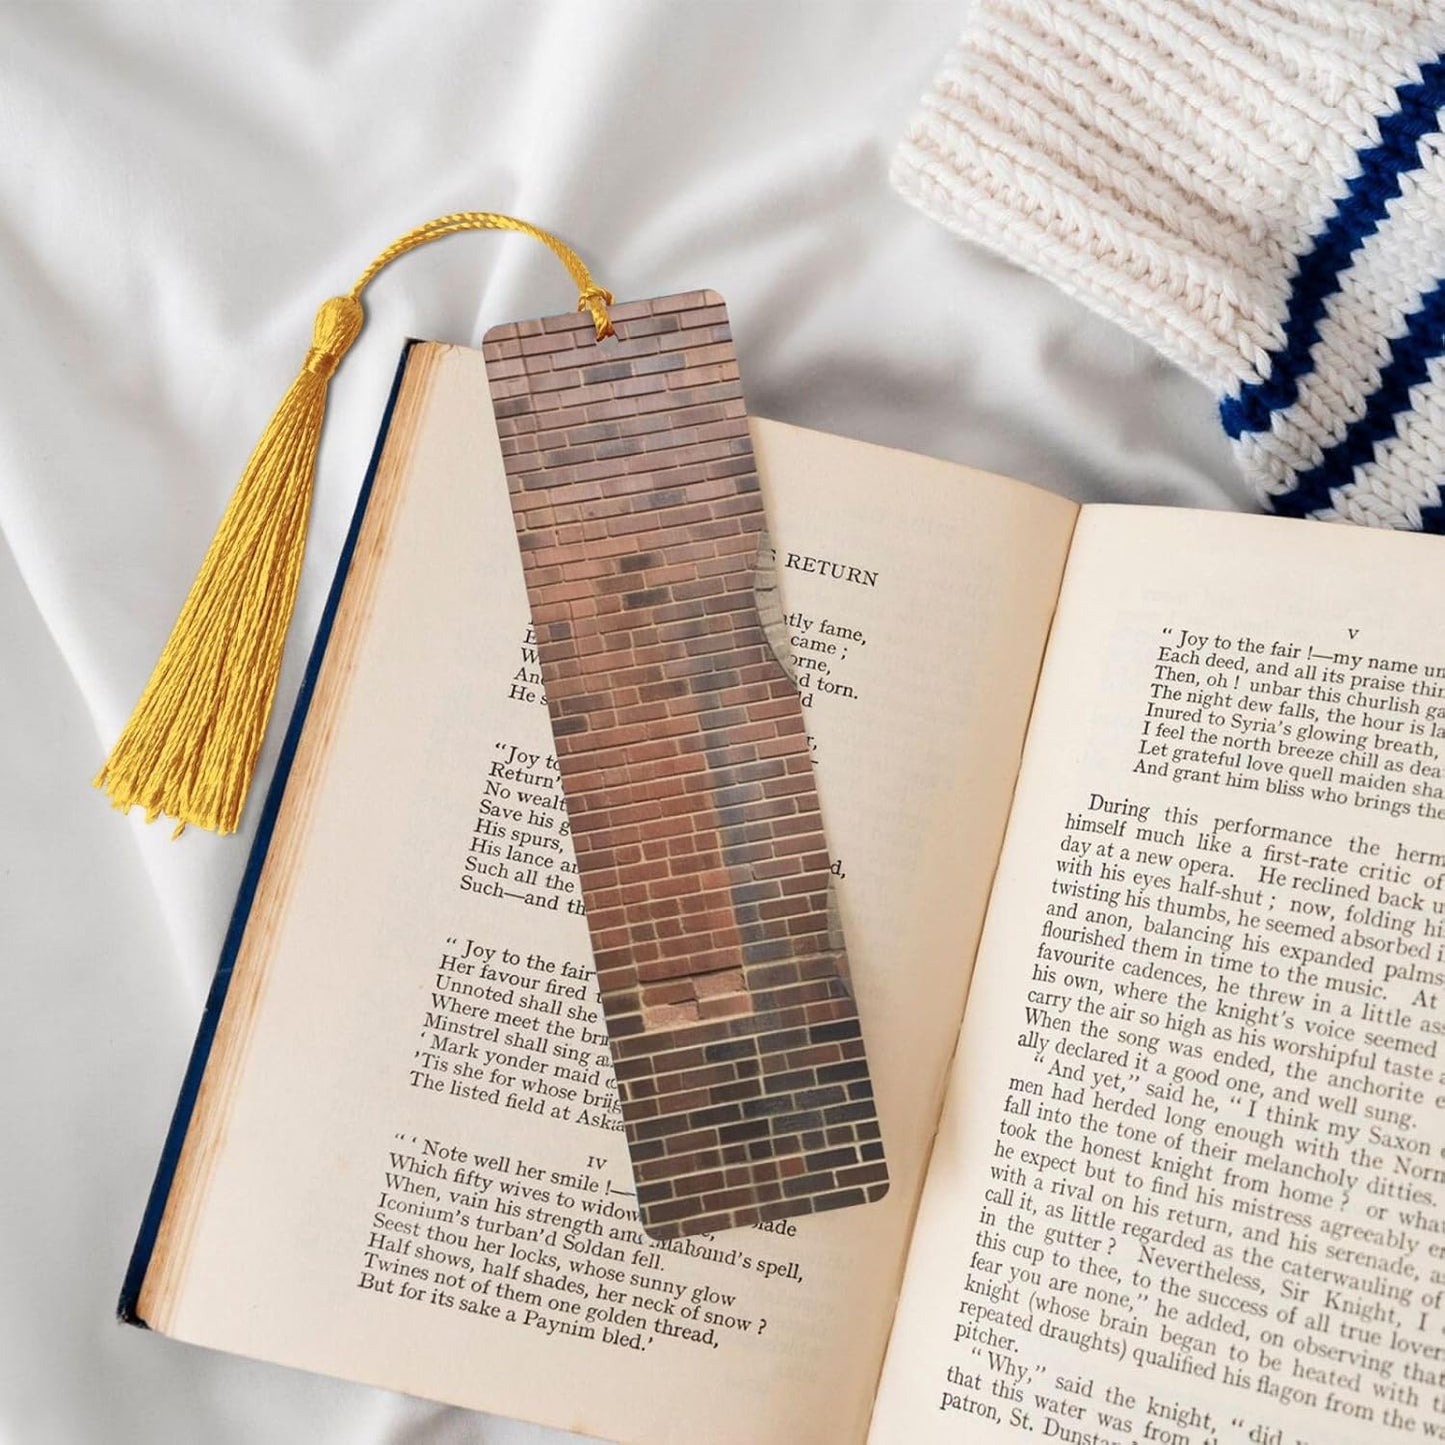 S RETURN
tly fame,
came ;
orne,
d torn.
He s
"Joy to
Return'
No wealt
Save his g
His spurs,
His lance an
Such all the
Such—and th
" Joy to the fair
Her favour fired
Unnoted shall she
Where meet the
Minstrel shall sing
' Mark yonder maid
'Tis she for whose
The listed field at
IV
" ' Note well her smile !—
Which fifty wives to widow
When, vain his strength and
Iconium's turban'd Soldan fell.
Seest thou her locks, whose sunny glow
Half shows, half shades, her neck of snow ?
Twines not of them one golden thread,
But for its sake a Paynim bled.'
V
" Joy to the fair !—my name un
Each deed, and all its praise thin
Then, oh ! unbar this churlish ga
The night dew falls, the hour is la
Inured to Syria's glowing breath,
I feel the north breeze chill as dea
Let grateful love quell maiden sha
And grant him bliss who brings the
During this performance the herm
himself much like a first-rate critic of
day at a new opera. He reclined back u
with his eyes half-shut ; now, folding hi
twisting his thumbs, he seemed absorbed i
and anon, balancing his expanded palms
flourished them in time to the music. At
favourite cadences, he threw in a little ass
his own, where the knight's voice seemed
carry the air so high as his worshipful taste a
When the song was ended, the anchorite e
ally declared it a good one, and well sung.
" And yet," said he, " I think my Saxon
men had herded long enough with the Norm
fall into the tone of their melancholy ditties.
took the honest knight from home ? or what
he expect but to find his mistress agreeably en
with a rival on his return, and his serenade, as
call it, as little regarded as the caterwauling of
in the gutter ? Nevertheless, Sir Knight, I
this cup to thee, to the success of all true lovers
fear you are none," he added, on observing that
knight (whose brain began to be heated with t
repeated draughts) qualified his flagon from the wa
pitcher.
" Why," said the knight, " did
that this water was from
patron, St. Dunstan